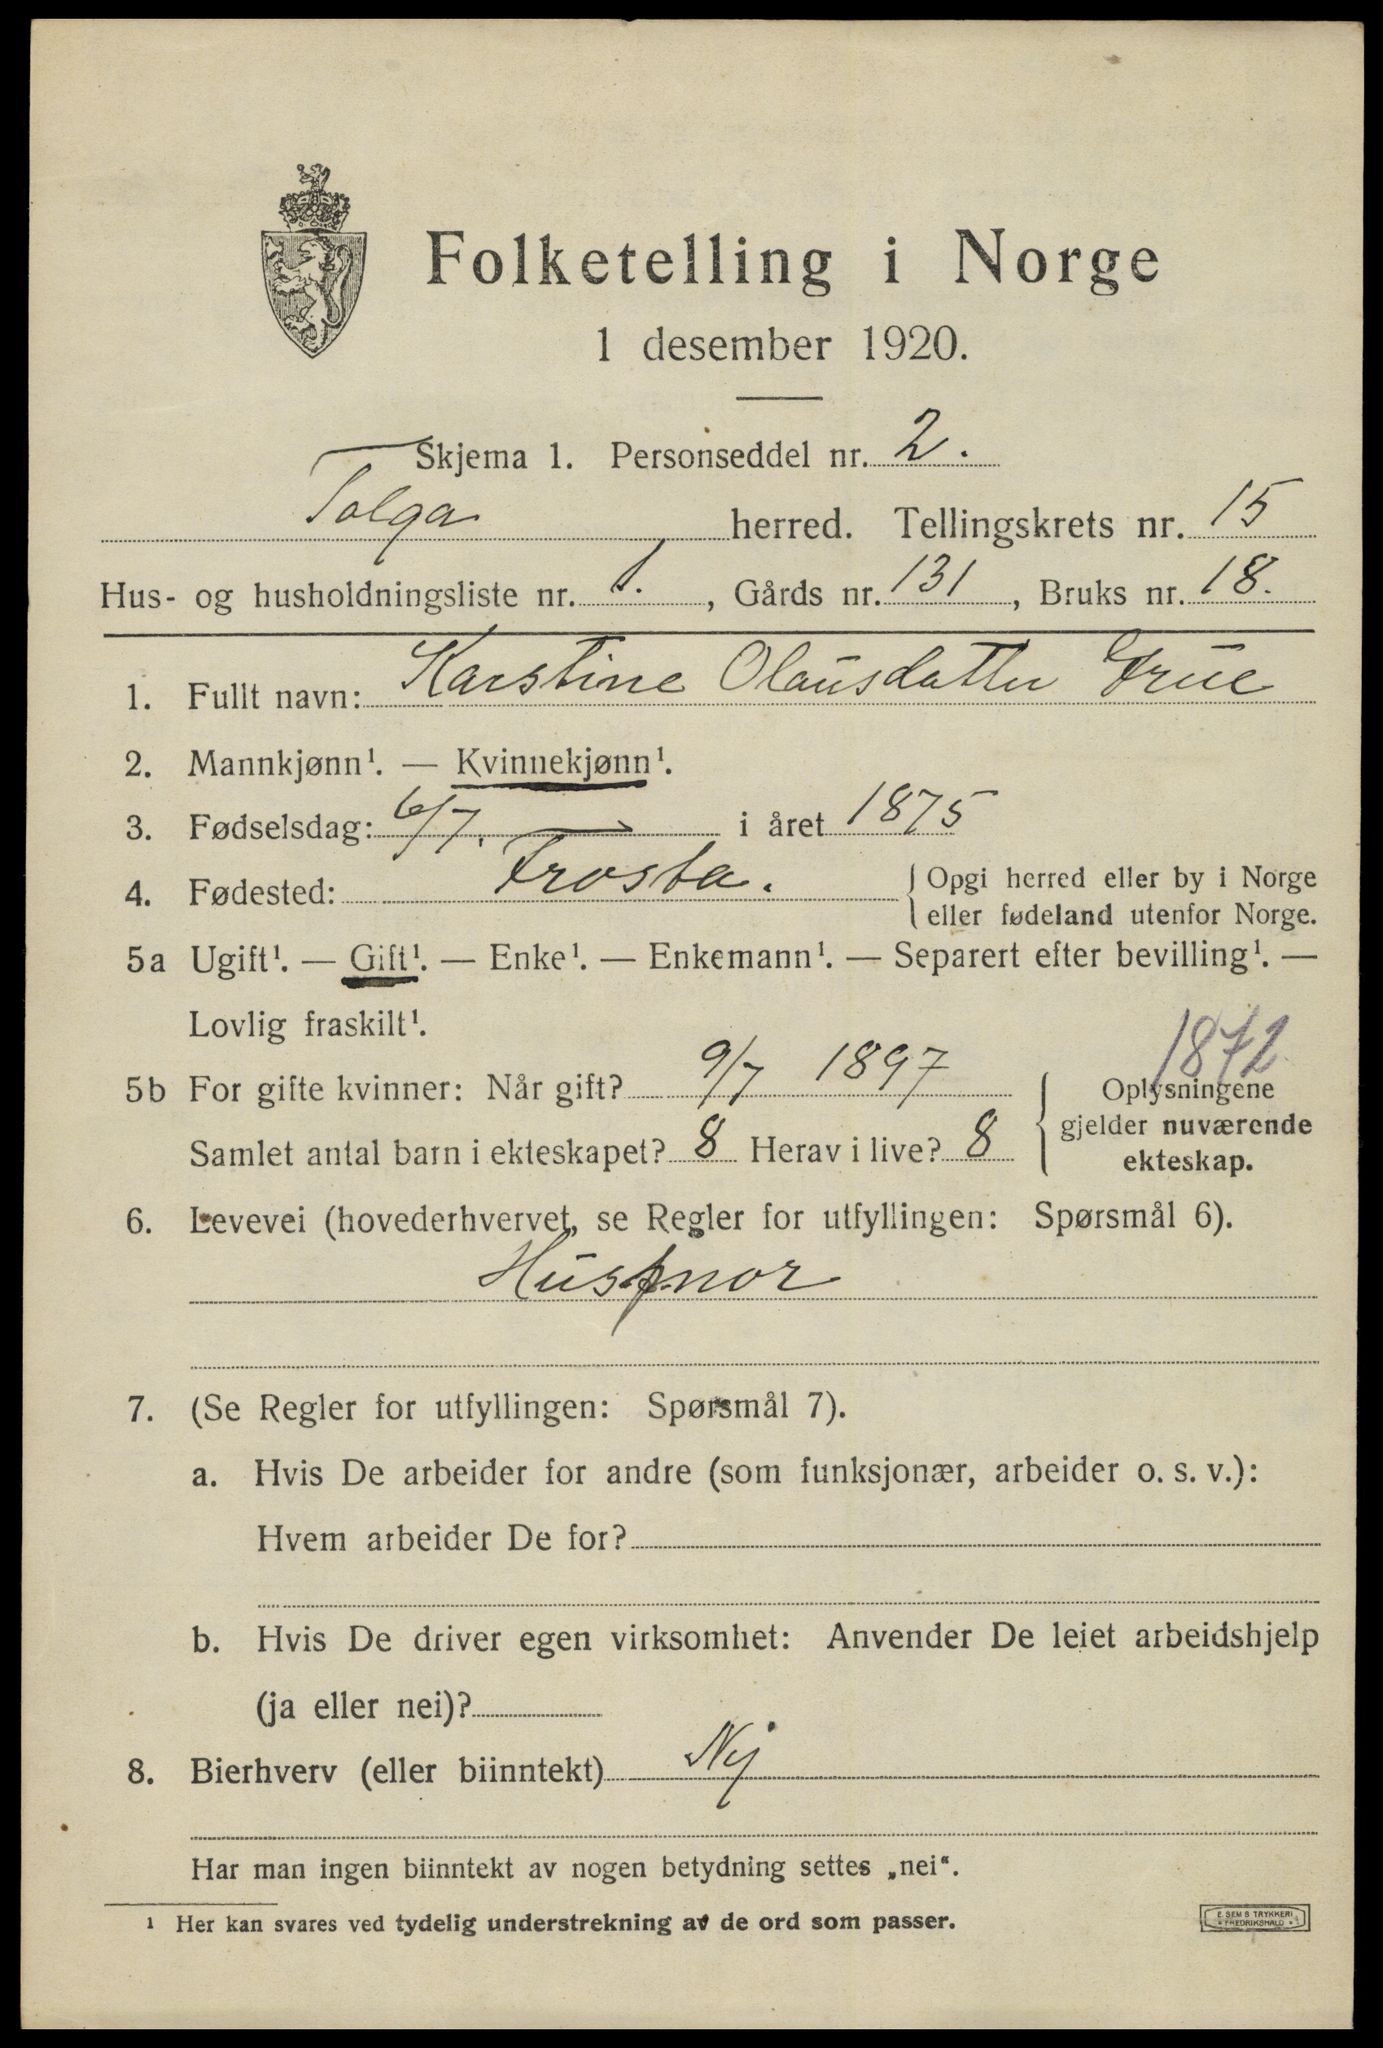 Folketelling i Norge
1 desember 1920.
Skjema 1. Personseddel nr. 2.
Tolga herred. Tellingskrets nr. 15
Hus- og husholdningsliste nr. 1., Gårds nr. 131, Bruks nr. 18.
1. Fullt navn: Karstine Olausdatter Grue
2. Mannkjønn¹. — Kvinnekjønn¹.
3. Fødselsdag: 6/7. i året 1875
4. Fødested: Frosta. { Opgi herred eller by i Norge
eller fødeland utenfor Norge.
5a Ugift¹. — Gift¹. — Enke¹. — Enkemann¹. — Separert efter bevilling¹. —
Lovlig fraskilt¹.
1872
5b For gifte kvinner: Når gift? 9/7 1897 { Oplysningene
gjelder nuværende
ekteskap.
Samlet antal barn i ekteskapet? 8 Herav i live? 8
6. Levevei (hovederhvervet, se Regler for utfyllingen: Spørsmål 6).
Husmor
7. (Se Regler for utfyllingen: Spørsmål 7).
a. Hvis De arbeider for andre (som funksjonær, arbeider o. s. v.):
Hvem arbeider De for?
b. Hvis De driver egen virksomhet: Anvender De leiet arbeidshjelp
(ja eller nei)?
8. Bierhverv (eller biinntekt) Nej
Har man ingen biinntekt av nogen betydning settes „nei“.
¹ Her kan svares ved tydelig understrekning av de ord som passer.
E. SEM S TRYKKERI
* FREDRIKSHALD *